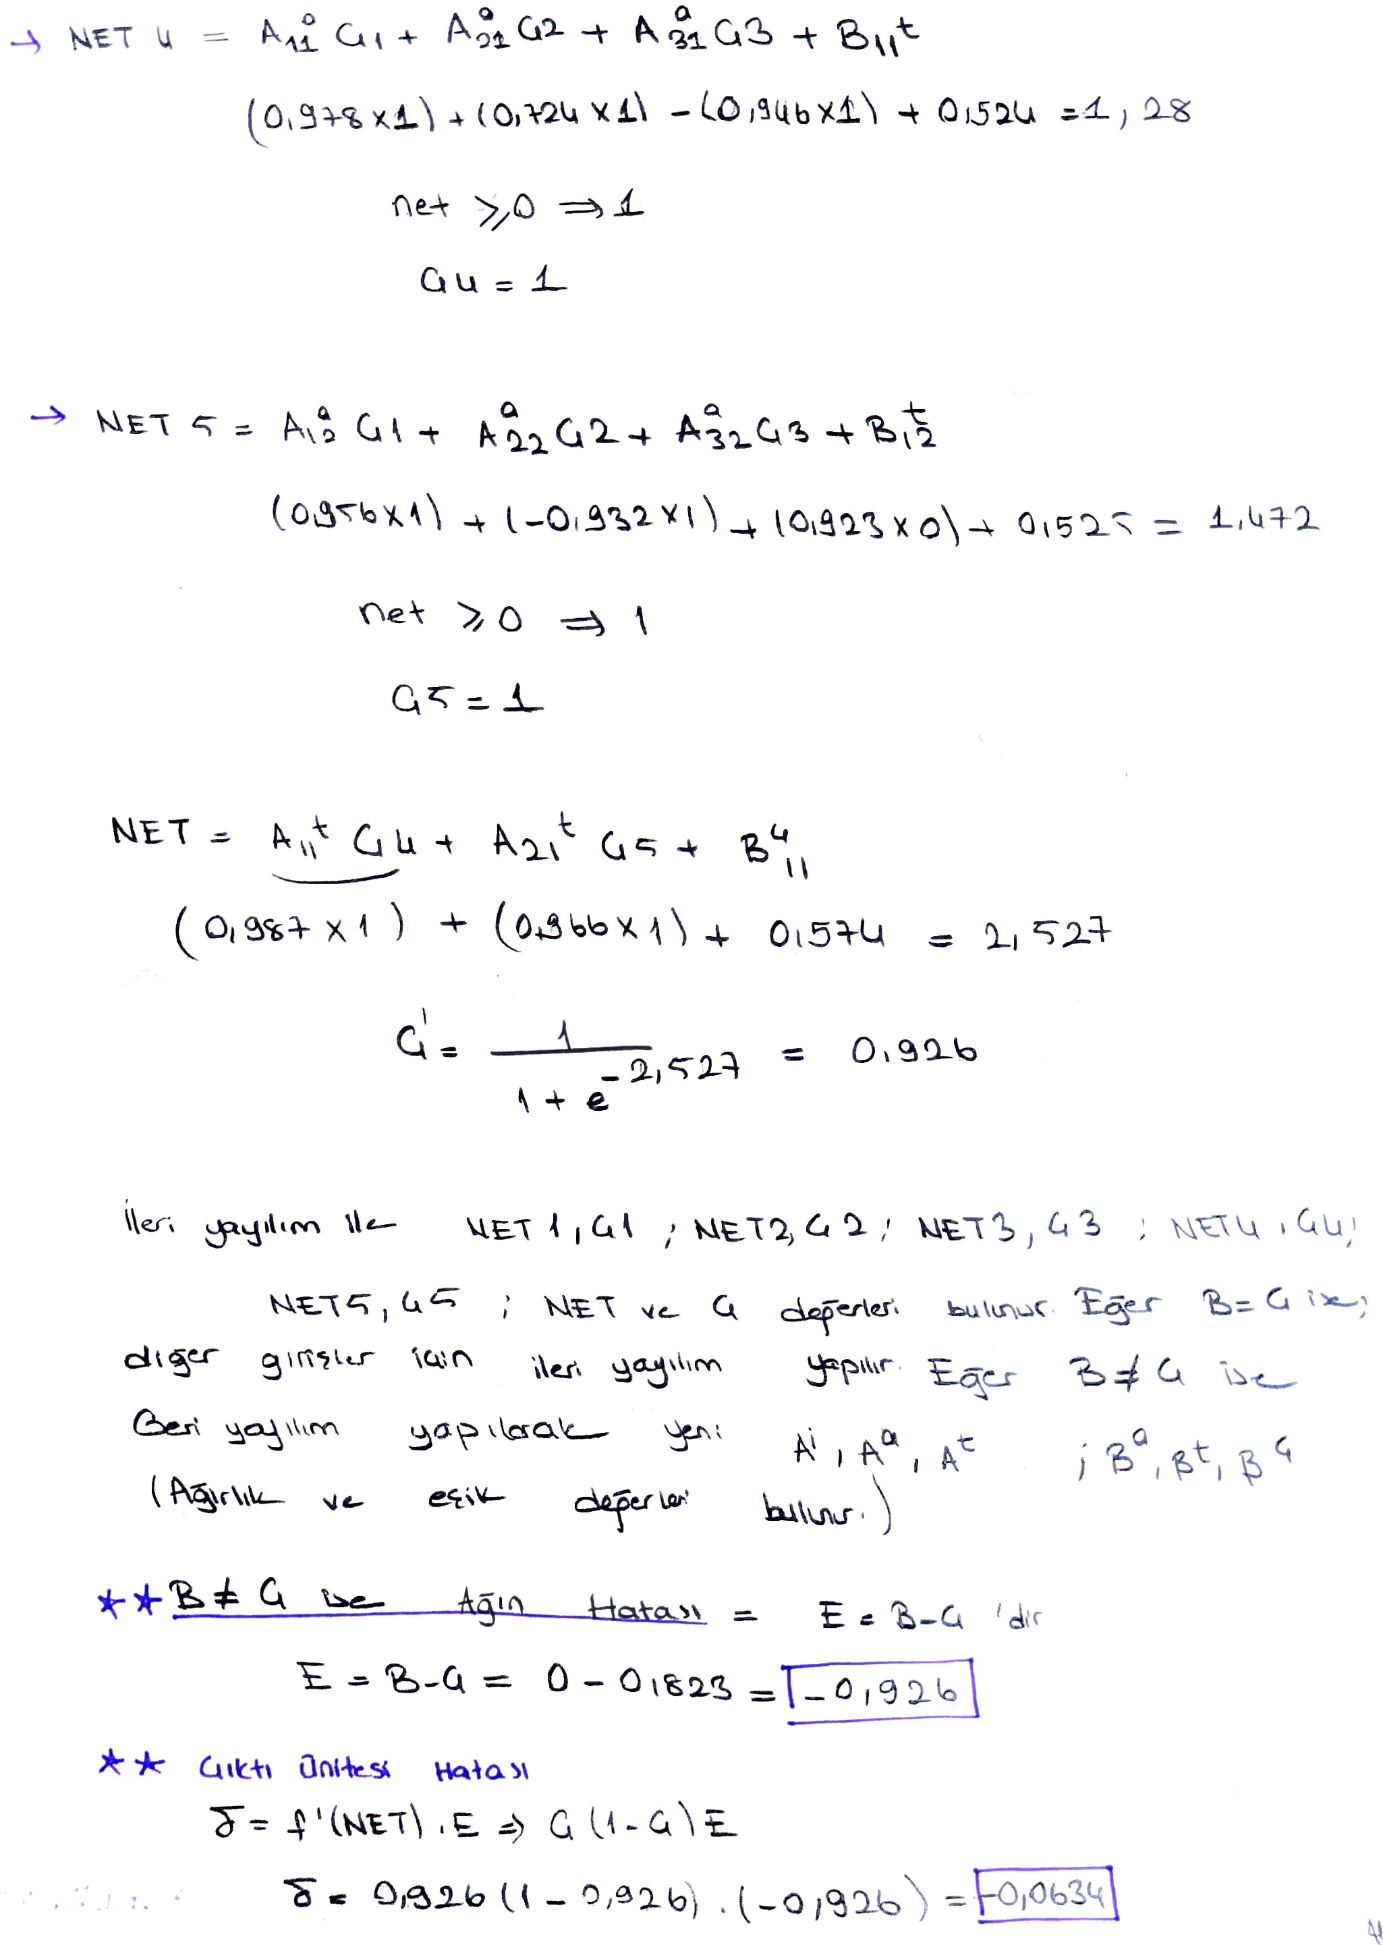 → NET 4 = A₁₁ᵃ Ç1 + A₂₁ᵃ Ç2 + A₃₁ᵃ Ç3 + B₁₁ᵗ
(0,978x1) + (0,724x1) - (0,946x1) + 0,524 = 1,28
net ⩾0 ⇒ 1
Ç4 = 1
→ NET 5 = A₁₂ᵃ Ç1 + A₂₂ᵃ Ç2 + A₃₂ᵃ Ç3 + B₁₂ᵗ
(0,956x1) + (-0,932x1) + (0,923x0) + 0,525 = 1,472
net ⩾0 ⇒ 1
Ç5 = 1
NET = A₁₁ᵗ Ç4 + A₂₁ᵗ Ç5 + B₁₁ᶜ
(0,987x1) + (0,966x1) + 0,574 = 2,527
Ç' = 1 / (1 + e^-2,527) = 0,926
İleri yayılım ile NET1, Ç1 ; NET2, Ç2 ; NET3, Ç3 ; NET4, Ç4;
NET5, Ç5 ; NET ve Ç değerleri bulunur. Eğer B=Ç ise;
diğer girişler için ileri yayılım yapılır. Eğer B≠Ç ise
Geri yayılım yapılarak yeni Aⁱ, Aᵃ, Aᵗ ; Bᵃ, Bᵗ, Bᶜ
(Ağırlık ve eşik değerleri bulunur.)
** B≠Ç ise Ağın Hatası = E = B-Ç 'dir
E = B-Ç = 0 - 0,823 = -0,926
** Çıktı Ünitesi Hatası
δ = f'(NET).E ⇒ Ç(1-Ç)E
δ = 0,926(1-0,926).(-0,926) = -0,0634